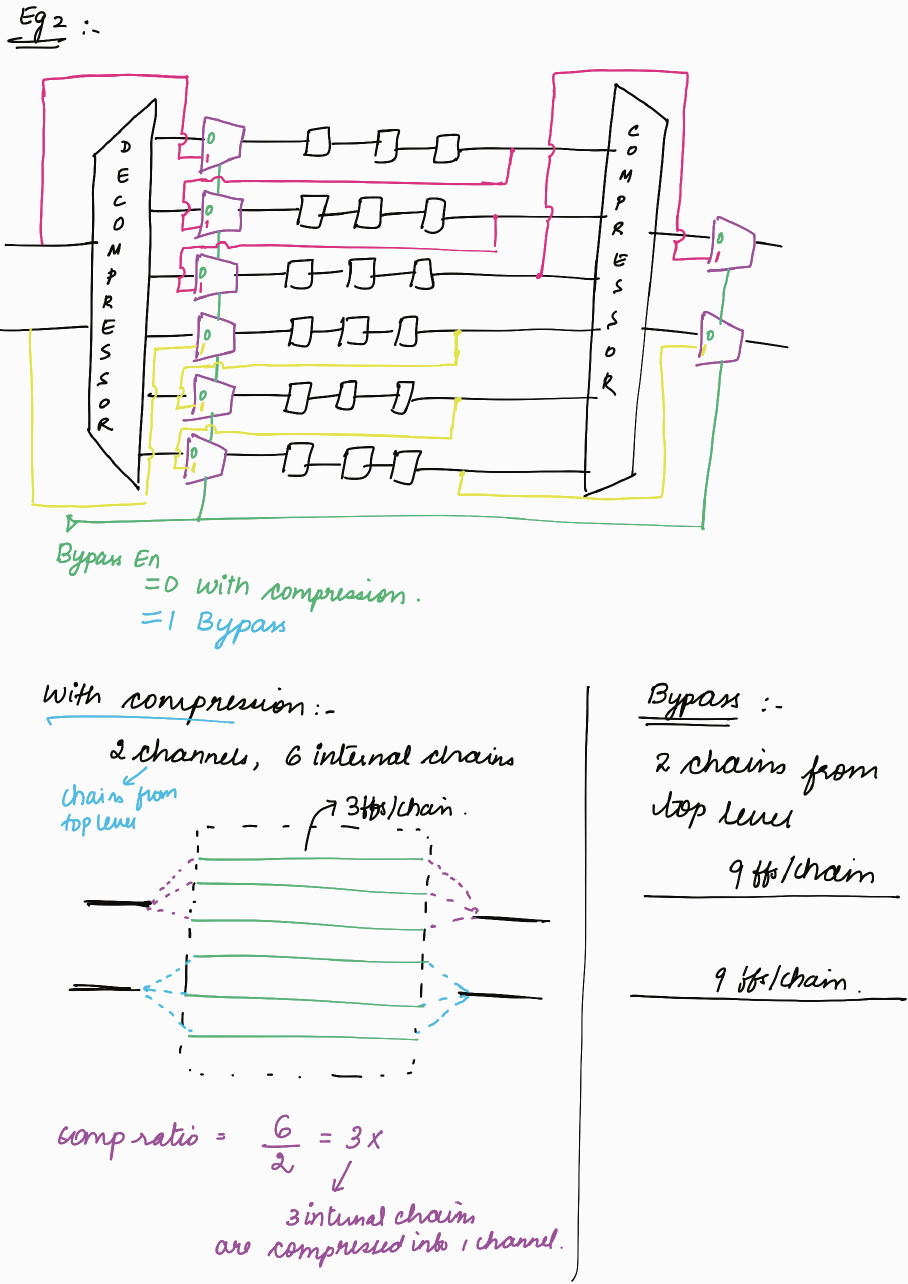 Eg 2 :-
DECOMPRESSOR
0
1
0
1
0
1
0
1
0
1
0
1
COMPRESSOR
0
1
0
1
Bypass En
=0 with compression.
=1 Bypass
With compression:-
2 channels, 6 internal chains
chains from
top level
3ffs/chain.
comp ratio = 6/2 = 3x
3 internal chains
are compressed into 1 channel.
Bypass :-
2 chains from
top level
9 ffs/chain
9 ffs/chain.